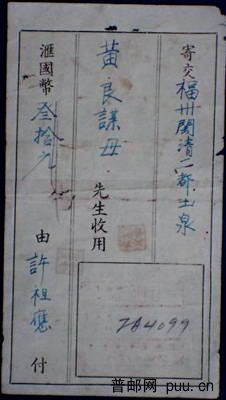 寄交福州閩清二都土泉
黄良謀母 先生收用
滙國幣叁拾元 由許祖應付
7A4099
普邮网 puu.cn